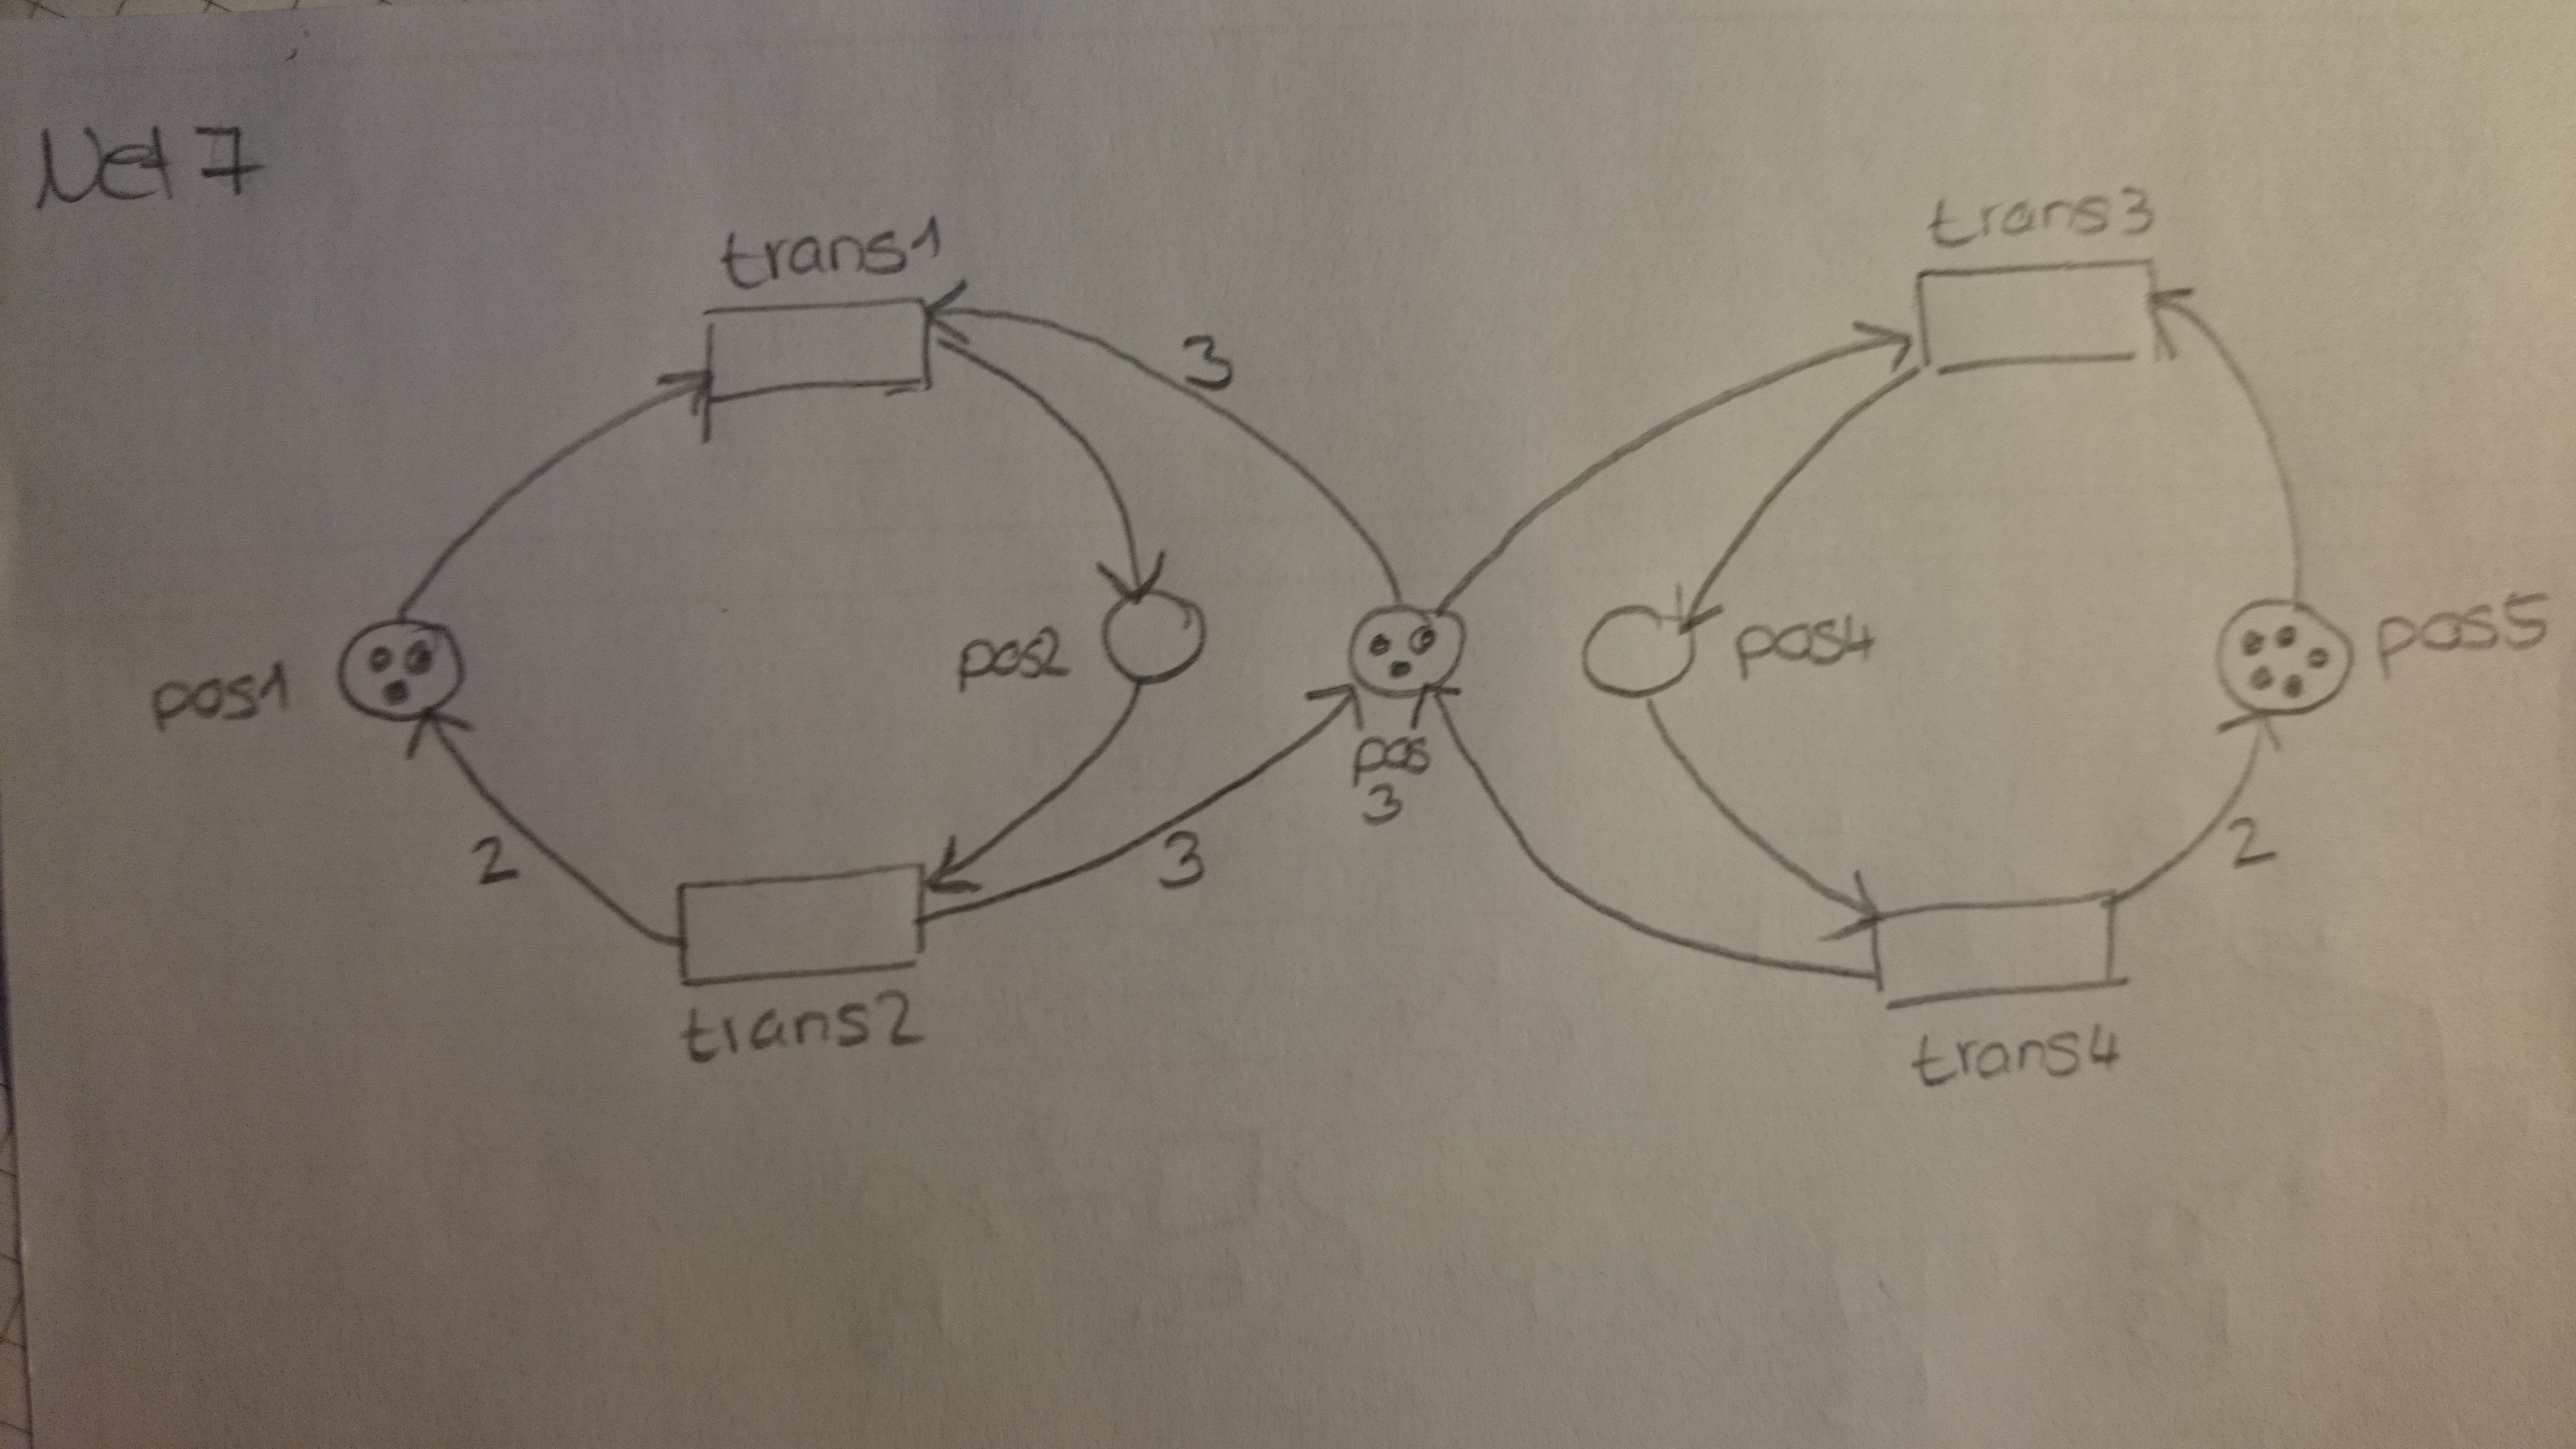 Net 7
trans1
trans3
3
pos1
pos2
pos
3
pos4
pos5
2
3
2
trans2
trans4